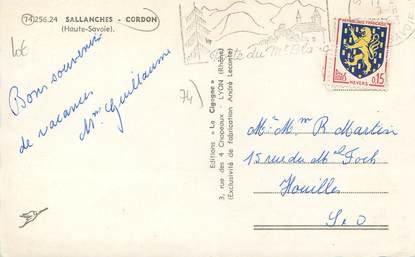 74 256.24 SALLANCHES - CORDON
(Haute-Savoie).
10€
Bons souvenirs
de vacances
Mme Guillaume
74)
Editions "La Cigogne"
3, rue des 4 Chapeaux - LYON (Rhône)
(Exclusivité de fabrication André Leconte)
du Mt Blanc
REPUBLIQUE FRANÇAISE
POSTES
0,15
NEVERS
Mr Mm R Martin
15 rue du Mal Foch
Houilles
S-O